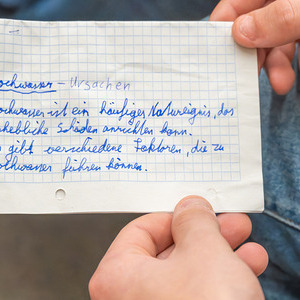 ochwasser - Ursachen
ochwasser ist ein häufiges Naturereignis, das
hebliche Schäden anrichten kann.
gibt verschiedene Faktoren, die zu
ochwasser führen können.